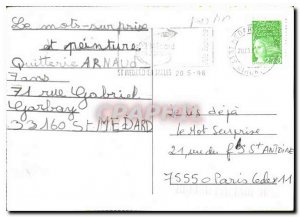 Le mots-surprise
et peinture.
Quitterie ARNAUD
7 ans
71 rue Gabriel
Garbay
33160 St MEDARD
ST MEDARD EN JALLES 20-5-98
Vous déjà
le Mot Surprise
21 rue du f S ST ANTOINE
75550 Paris Cedex 11